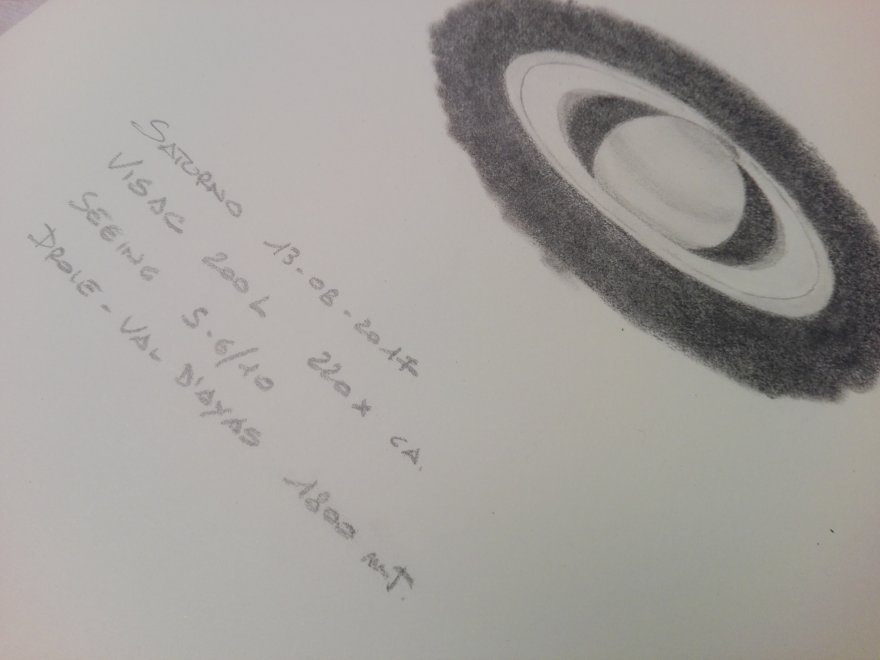 SATURNO 13-08-2017
VISAC 200L 220X CA.
SEEING 5-6/10
DROLE - VAL D'AYAS 1800 MT.